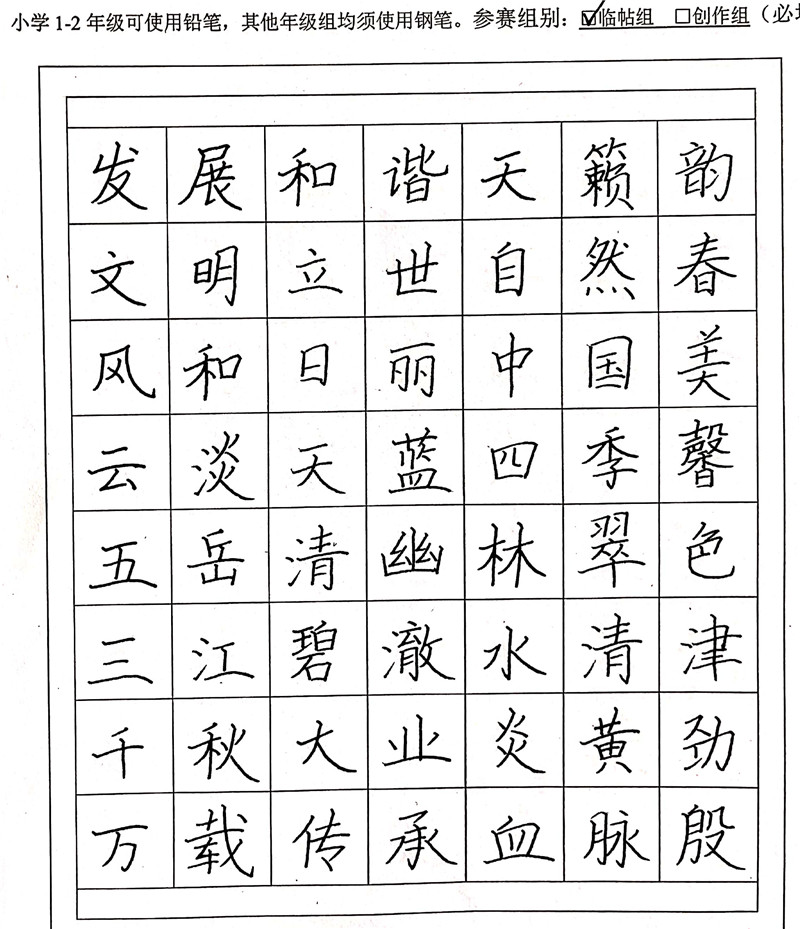 小学1-2年级可使用铅笔，其他年级组均须使用钢笔。参赛组别：☑临帖组 □创作组（必
发展和谐天籁韵
文明立世自然春
风和日丽中国美
云淡天蓝四季馨
五岳清幽林翠色
三江碧澈水清津
千秋大业炎黄劲
万载传承血脉殷